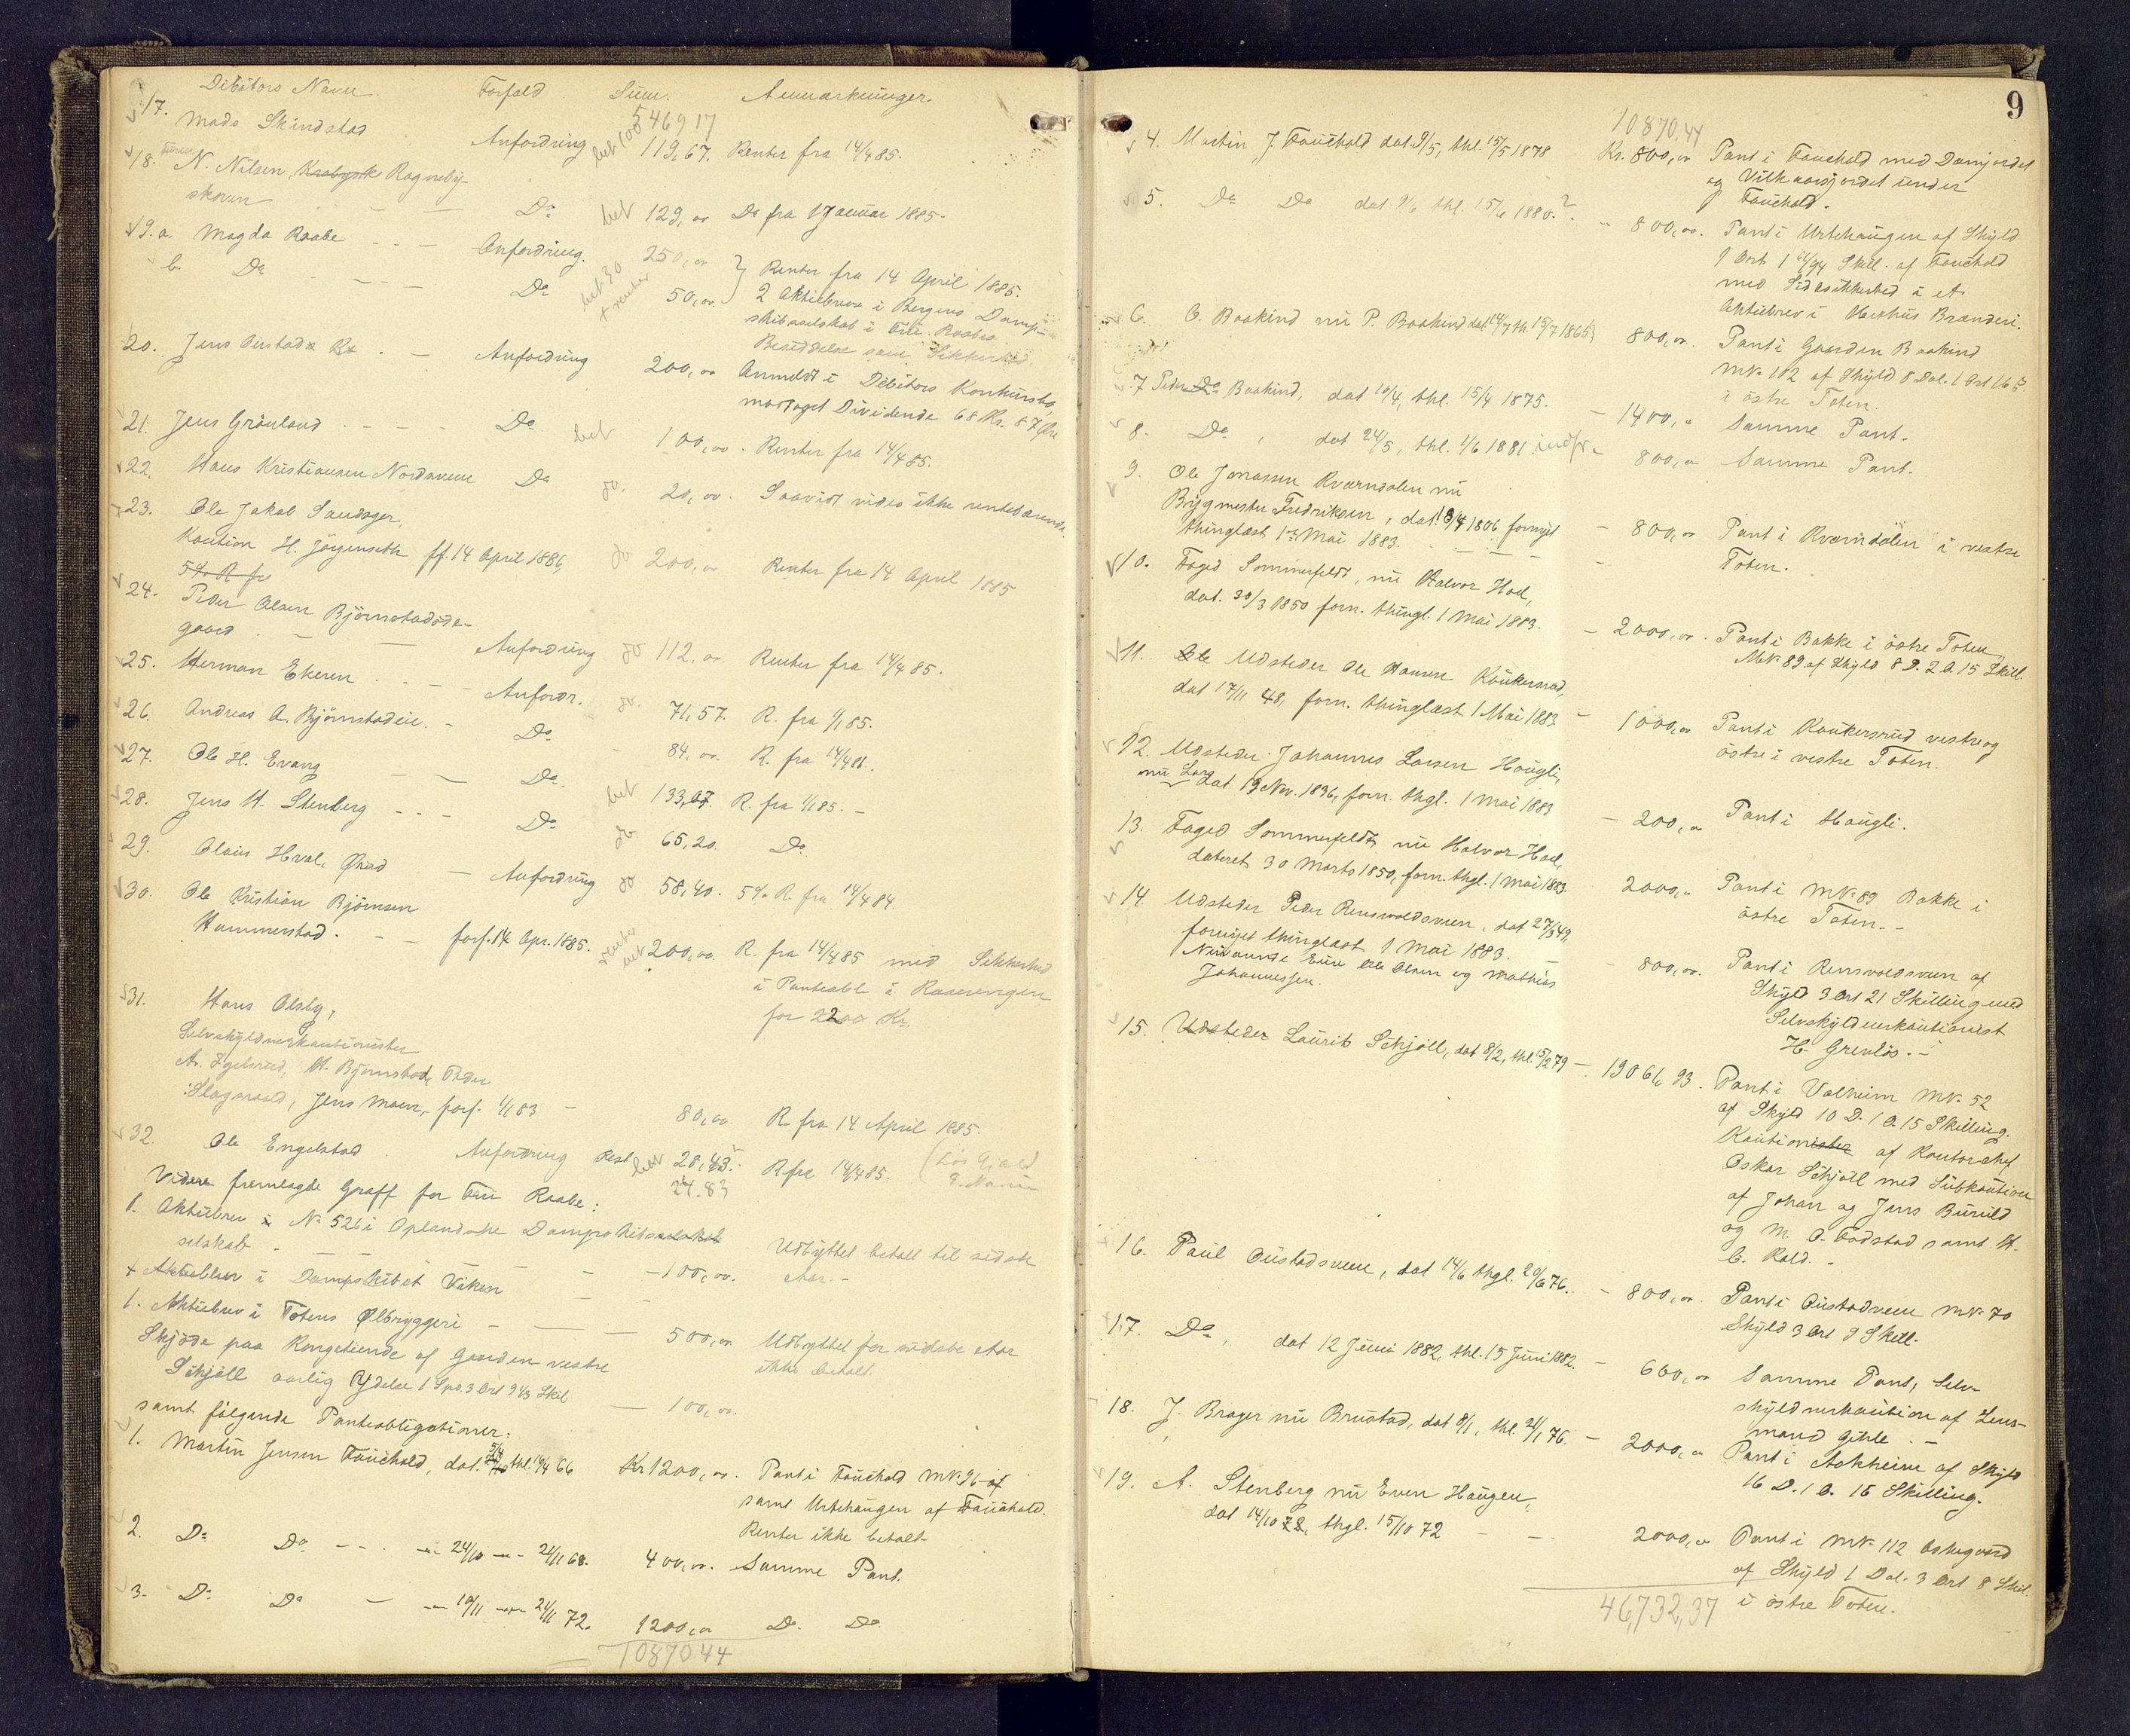 Debitors Navn. Forfald Sum. Anmærkninger.
546917
17. Mads Skindstad Anfordring bet 100 119,67. Renter fra 14/4 85.
18. N. Nilsen, Ragneby-
skoven — — Do bet 129,00 Do fra 1 Januar 1885.
19. a. Magda Raabe - - — Anfordring. 250,00 } Renter fra 14 April 1885.
b. Do - - — Do bet 30 + renter 50,00. } 2 Aktiebreve i Bergens Damp-
skibsselskab i Frk. Raabes
Besiddelse som Sikkerhed.
20. Jens Austad . — Anfordring 200,00 Anmeldt i Debitors Konkursbo,
modtaget Dividende 68 Kr. 87 Øre
21. Jens Grönland . - - - Do bet 100,00. Renter fra 14/4 85.
22. Hans Kristiansen Nordsveen Do do. 20,00. Saavidt vides ikke rentebærende.
23. Ole Jakob Sandager,
Kaution H. Jörgenseth ff. 14 April 1886, do 200,00 Renter fra 14 April 1885
5% R. fra
24. Peder Olsen Björnstadöde-
gaard . — — Anfordring do 112,00 Renter fra 14/4 85.
25. Herman Ekeren . . - — Anfordr. do. 71,57. R. fra 1/1 85.
26. Andreas A. Björnstadeie. - Do - 84,00. R. fra 14/4 81.
27. Ole H. Evang — — Do. bet 133,07. R. fra 1/1 85. -
28. Jens H. Stenberg - - - Do do 65,20. Do.
29. Olaus Hval, Ökad — Anfordring do 58,40. 5% R. fra 14/4 84.
30. Ole Kristian Björnsen
Hammerstad. - — forf. 14 Apr. 1885. renter bet 200,00. R. fra 14/4 85 med Sikkerhed
i Panteobl. i
for 2200 Kr.
31. Hans Olsby,
Selvskyldnerkautionister
A. Egelsrud, H. Bjørnstad, Peder
Slagsvold, Jens Moen, forf. 1/1 83 - 80,00. R. fra 14 April 1885.
32. Ole Engelstad Anfordring Rest bet 28,43. R fra 14/4 85. (Lös Gjæld
24.83
Videre fremlagde Graff for Frk Raabe:
1. Aktiebrev i No 526 i Oplandske Dampskibsselskab
selskab - — — — 100,00. Udbyttet betalt til sidste
Aar. -
+ Aktiebrev i Dampskibet Viken — —
1. Aktiebrev i Totens Ølbryggeri - — — 500,00. Udbyttet for sidste Aar
ikke betalt.
Skjöde paa Kongetiende af Gaarden vestre
Schjöll aarlig Ydelse 1 Spd. 3 Ort 9 1/3 Skil — 100,00.
samt følgende Panteobligationer:
1. Martin Jensen Fauchald, dat. thl. 19/4 66 Kr 1200,00. Pant i Fauchald MN. 96 af
samt Urtehaugen af Fauchald.
Renter ikke betalt
2. Do Do - - . -"- 24/10 -"- 21/11 68. 400,00. Samme Pant.
3. Do Do — -"- 19/11 -"- 21/11 72. 1200,00 Do. Do
1087044
9
10870.44
4. Martin J. Fauchald dat 9/5, thl. 15/5 1878 Kr. 800,00 Pant i Fauchald med Damjordet
og Vilkaarsjordet under
Fauchald.
5. Do Do dat 9/6 thl. 15/6 1880. ?. - 800,00. Pant i Urtehaugen af Skyld
1 Ort 1 Skill. af Fauchald
med Sidesikkerhed i et
Aktiebrev i Brænderi.
6. O. Baakind nu P. Baakind dat 14/7 th. 15/7 1865. 800,00. Pant i Gaarden Baakind
MN. 112 af Skyld 8 Dal. 1 Ort 16 S
i östre Toten.
7 Peder Do Baakind, dat 10/4, thl. 15/4 1875. — 1400,00 Samme Pant.
8. Do , dat 24/5, thl. 1/6 1881. indfr. - 800,00 Samme Pant.
9. Ole Jonassen Kværndalen nu
Bygmester Fredriksen, dat. 8/4 1806 fornyet
thinglæst 1ste Mai 1883. - — — — 800,00 Pant i Kværndölen i vestre
Toten.
10. Foged Sommerfeldt, nu Halvor Hoel,
dat. 30/3 1850 forn. thingl. 1 Mai 1883. — 2000,00. Pant i Bakke i östre Toten,
MN. 89 af Skyld 8 D. 2 O. 15 Skill
11. Ole Udsteder Ole Hansen Kaukerud,
dat 17/11 48, forn. thinglæst 1 Mai 1883 — 1000,00 Pant i Kaukersrud vestre og
östre i vestre Toten.
12. Udsteder Johannes Larsen Haugli,
nu Lars dat 19 Nov. 1836, forn. thgl. 1 Mai 1883 — 200,00 Pant i Haugli.
13. Foged Sommerfeldt, nu Halvor Hoel,
dateret 30 Marts 1850, forn. thgl. 1 Mai 1883. 2000,00 Pant i MN. 89 Bakke i
östre Toten. -
14. Udsteder Peder Rensvoldsveen, dat 27/3 49,
fornyet thinglæst 1 Mai 1883. —
Nuværende Eiere Ole Olsen og Mathias
Johannessen. - 800,00. Pant i Rensvoldsveen af
Skyld 3 Ort 21 Skilling med
Selvskyldnerkautionist
H. Grenlös. -
15. Udsteder Laurits Schjöll, dat 8/2, thl. 15/2 79 — 19061,93. Pant i Valheim MN. 52
af Skyld 10 D. 1 O. 15 Skilling.
Kautionister af Kontorchef
Oskar Schjöll med Subkaution
af Johan og Jens Buruld
og M. O. Fodstad samt H.
C. Kold. -
16. Paul Austadsveen, dat 14/6 thgl. 20/6 76. — 800,00. Pant i Austadveen MN. 70
Skyld 3 Ort 9 Skill.
17. Do, dat 12 Juni 1882, thl. 15 Juni 1882. — 600,00 Samme Pant, Selv-
skyldnerkaution af Lens-
mand Gihle. -
18. J. Brager nu Brustad, dat 8/1, thl. 21/1 76. — 2000,00 Pant i Askheim af Skyld
16 D. 1 O. 15 Skilling.
19. A. Stenberg nu Even Haugen,
dat 14/10 72, thgl. 15/10 72 - — 2000,00 Pant i MN. 112
af Skyld 1 Dal. 3 Ort 8 Skil.
i östre Toten.
46,732,37